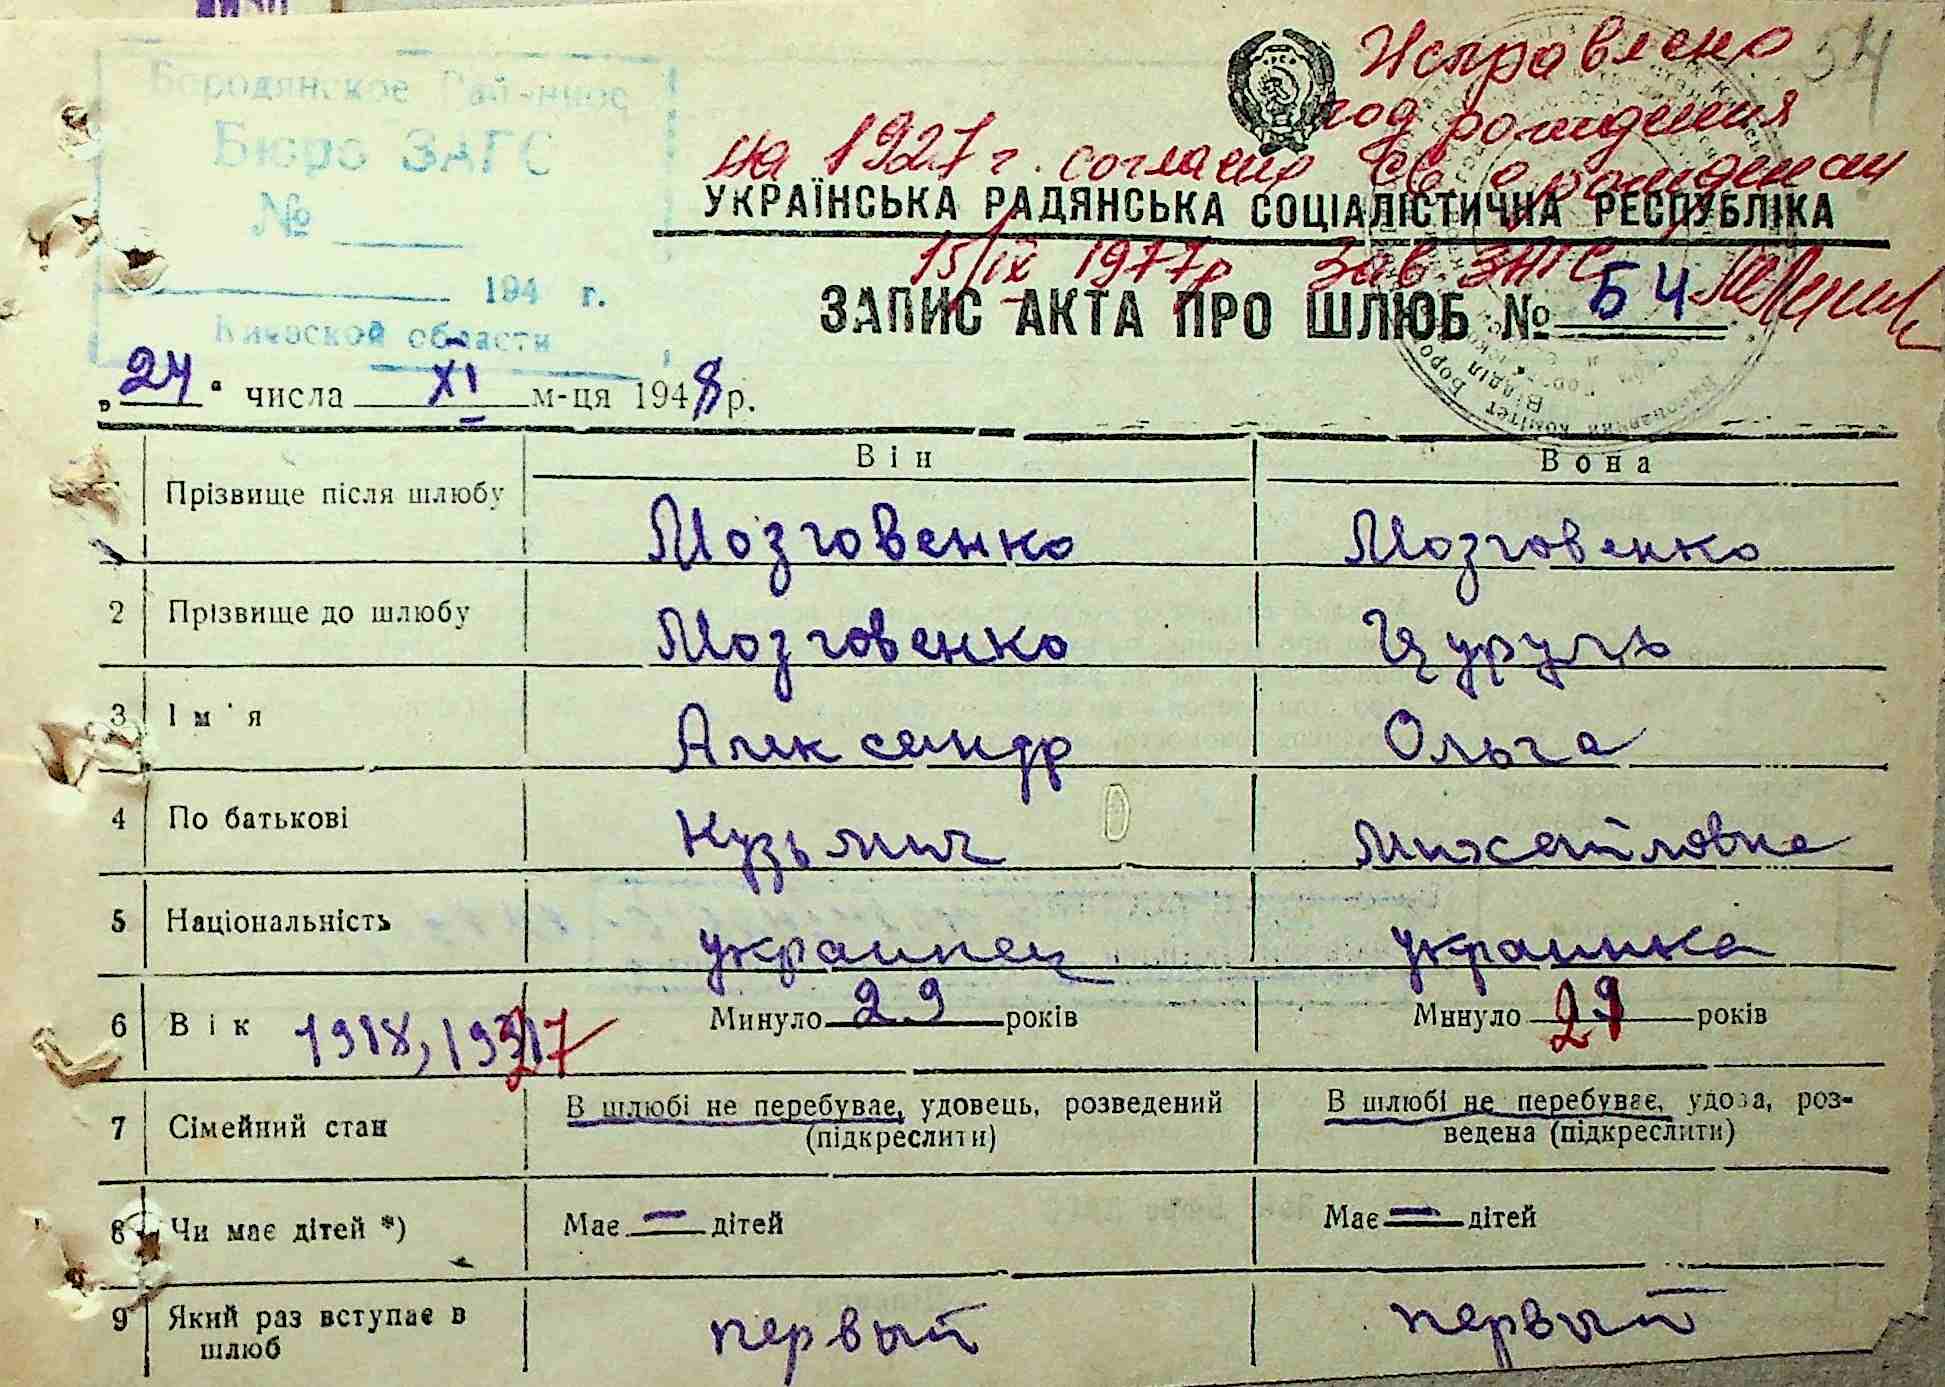 Бородянское Районное
Бюро ЗАГС
№
194 г.
Киевской области
54
Исправлено
год рождения
на 1927 г. согласно св о рождении
УКРАЇНСЬКА РАДЯНСЬКА СОЦІАЛІСТИЧНА РЕСПУБЛІКА
15/IX 1977р Зав. ЗАГС
ЗАПИС АКТА ПРО ШЛЮБ № 54
„24“ числа XI м-ця 1948 р.
Він Вона
Прізвище після шлюбу Мозговенко Мозговенко
2 Прізвище до шлюбу Мозговенко Цуруль
3 Ім'я Александр Ольга
4 По батькові Кузьмич Михайловна
5 Національність украинец украинка
6 Вік 1918, 1927 Минуло 29 років Минуло 21 років
7 Сімейний стан В шлюбі не перебуває, удовець, розведений (підкреслити) В шлюбі не перебуває, удова, роз-
ведена (підкреслити)
8 Чи має дітей *) Має — дітей Має — дітей
9 Який раз вступає в шлюб первый первый